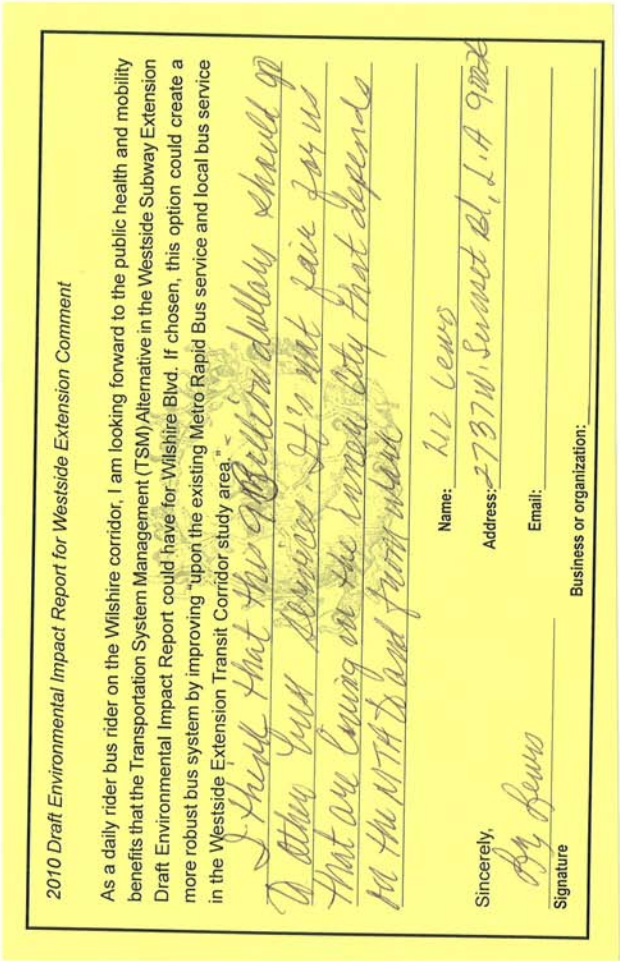 2010 Draft Environmental Impact Report for Westside Extension Comment
As a daily rider bus rider on the Wilshire corridor, I am looking forward to the public health and mobility
benefits that the Transportation System Management (TSM) Alternative in the Westside Subway Extension
Draft Environmental Impact Report could have for Wilshire Blvd. If chosen, this option could create a
more robust bus system by improving "upon the existing Metro Rapid Bus service and local bus service
in the Westside Extension Transit Corridor study area."
I think that this 9 Billion dollars should go
to other bus services It's not fair for us
that are living in the inner city that depends
on the MTA to and from work
Sincerely,
Signature
Name: Liz Lewis
Address: 2737 W. Sunset Bl, L.A
Email:
Business or organization: